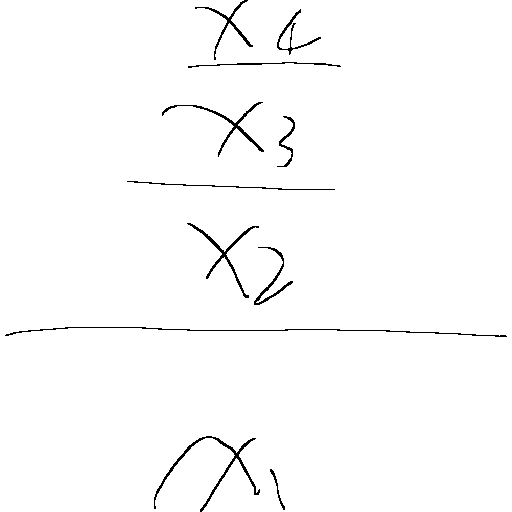 x₄
x₃
x₂
x₁